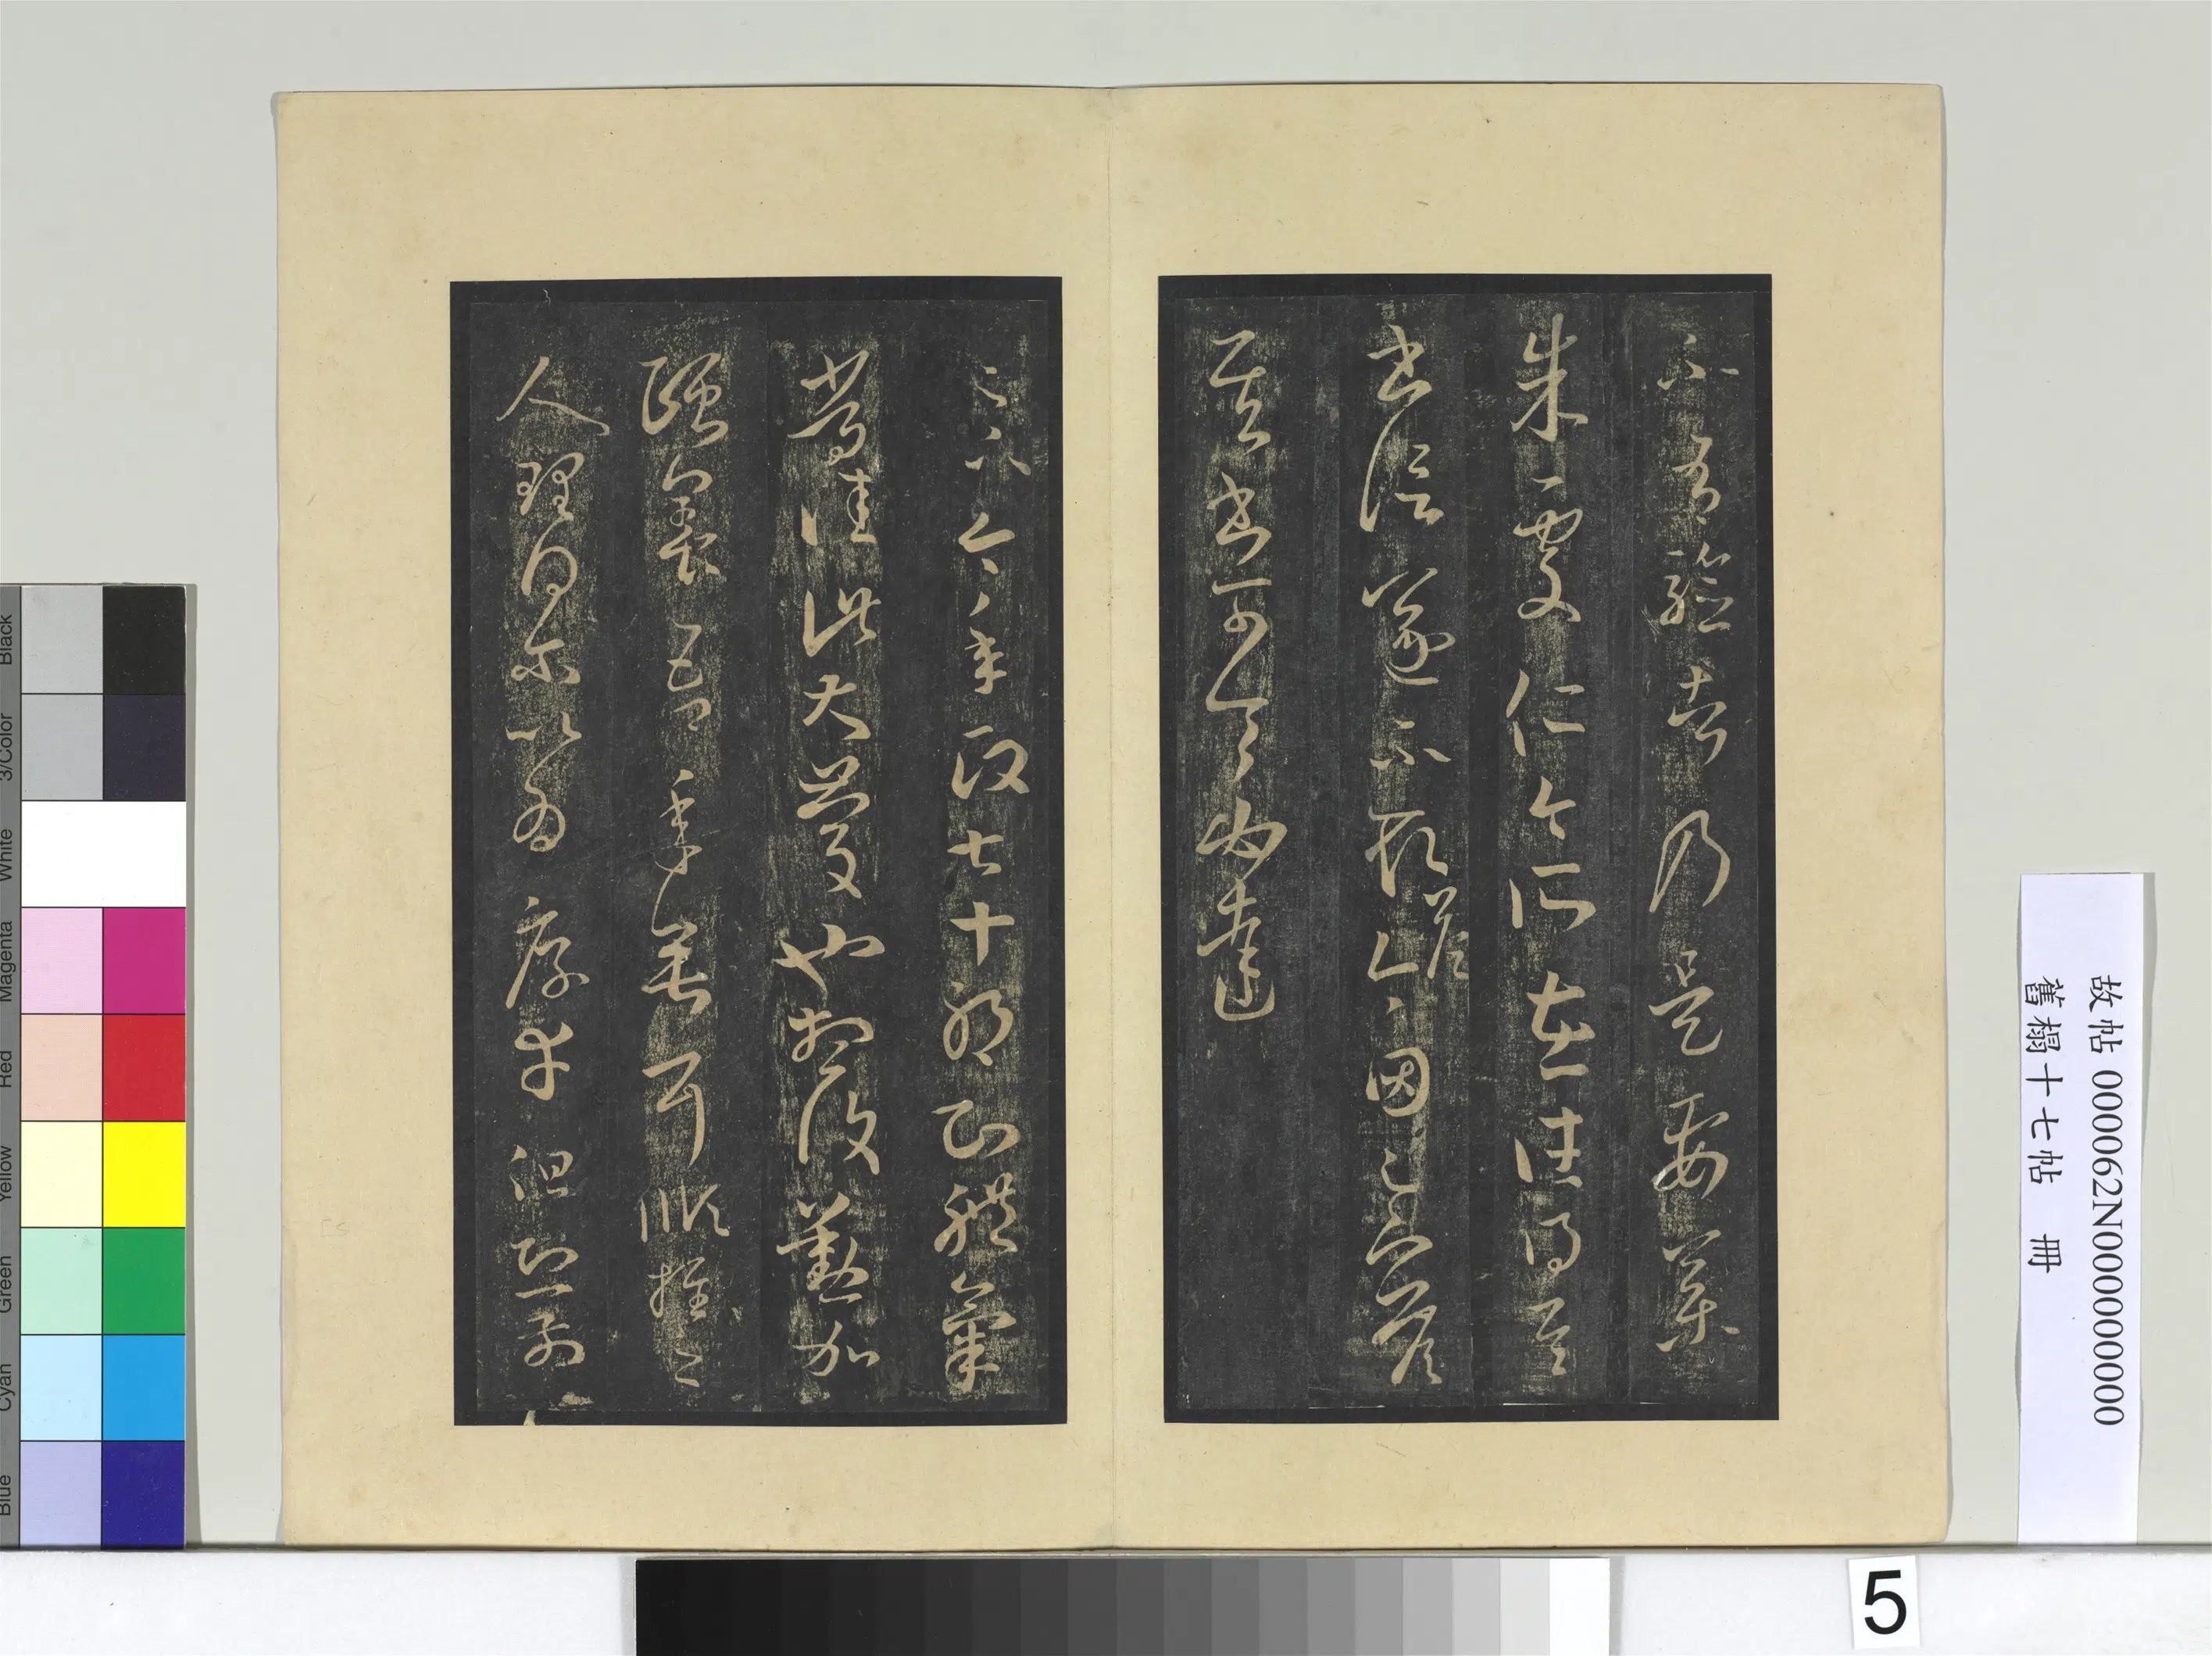 不有驗者乃是要藥
朱處仁今所在往得其
書信遂不取答今因足下答
其書可令必達
足下今年政七十耶知體氣
常佳此大慶也想復勤加
頤養吾年垂耳順推之
人理得爾以為厚幸但恐前
故帖 000062N000000000
舊榻十七帖 冊
5
Black
3/Color
White
Magenta
Red
Yellow
Green
Cyan
Blue